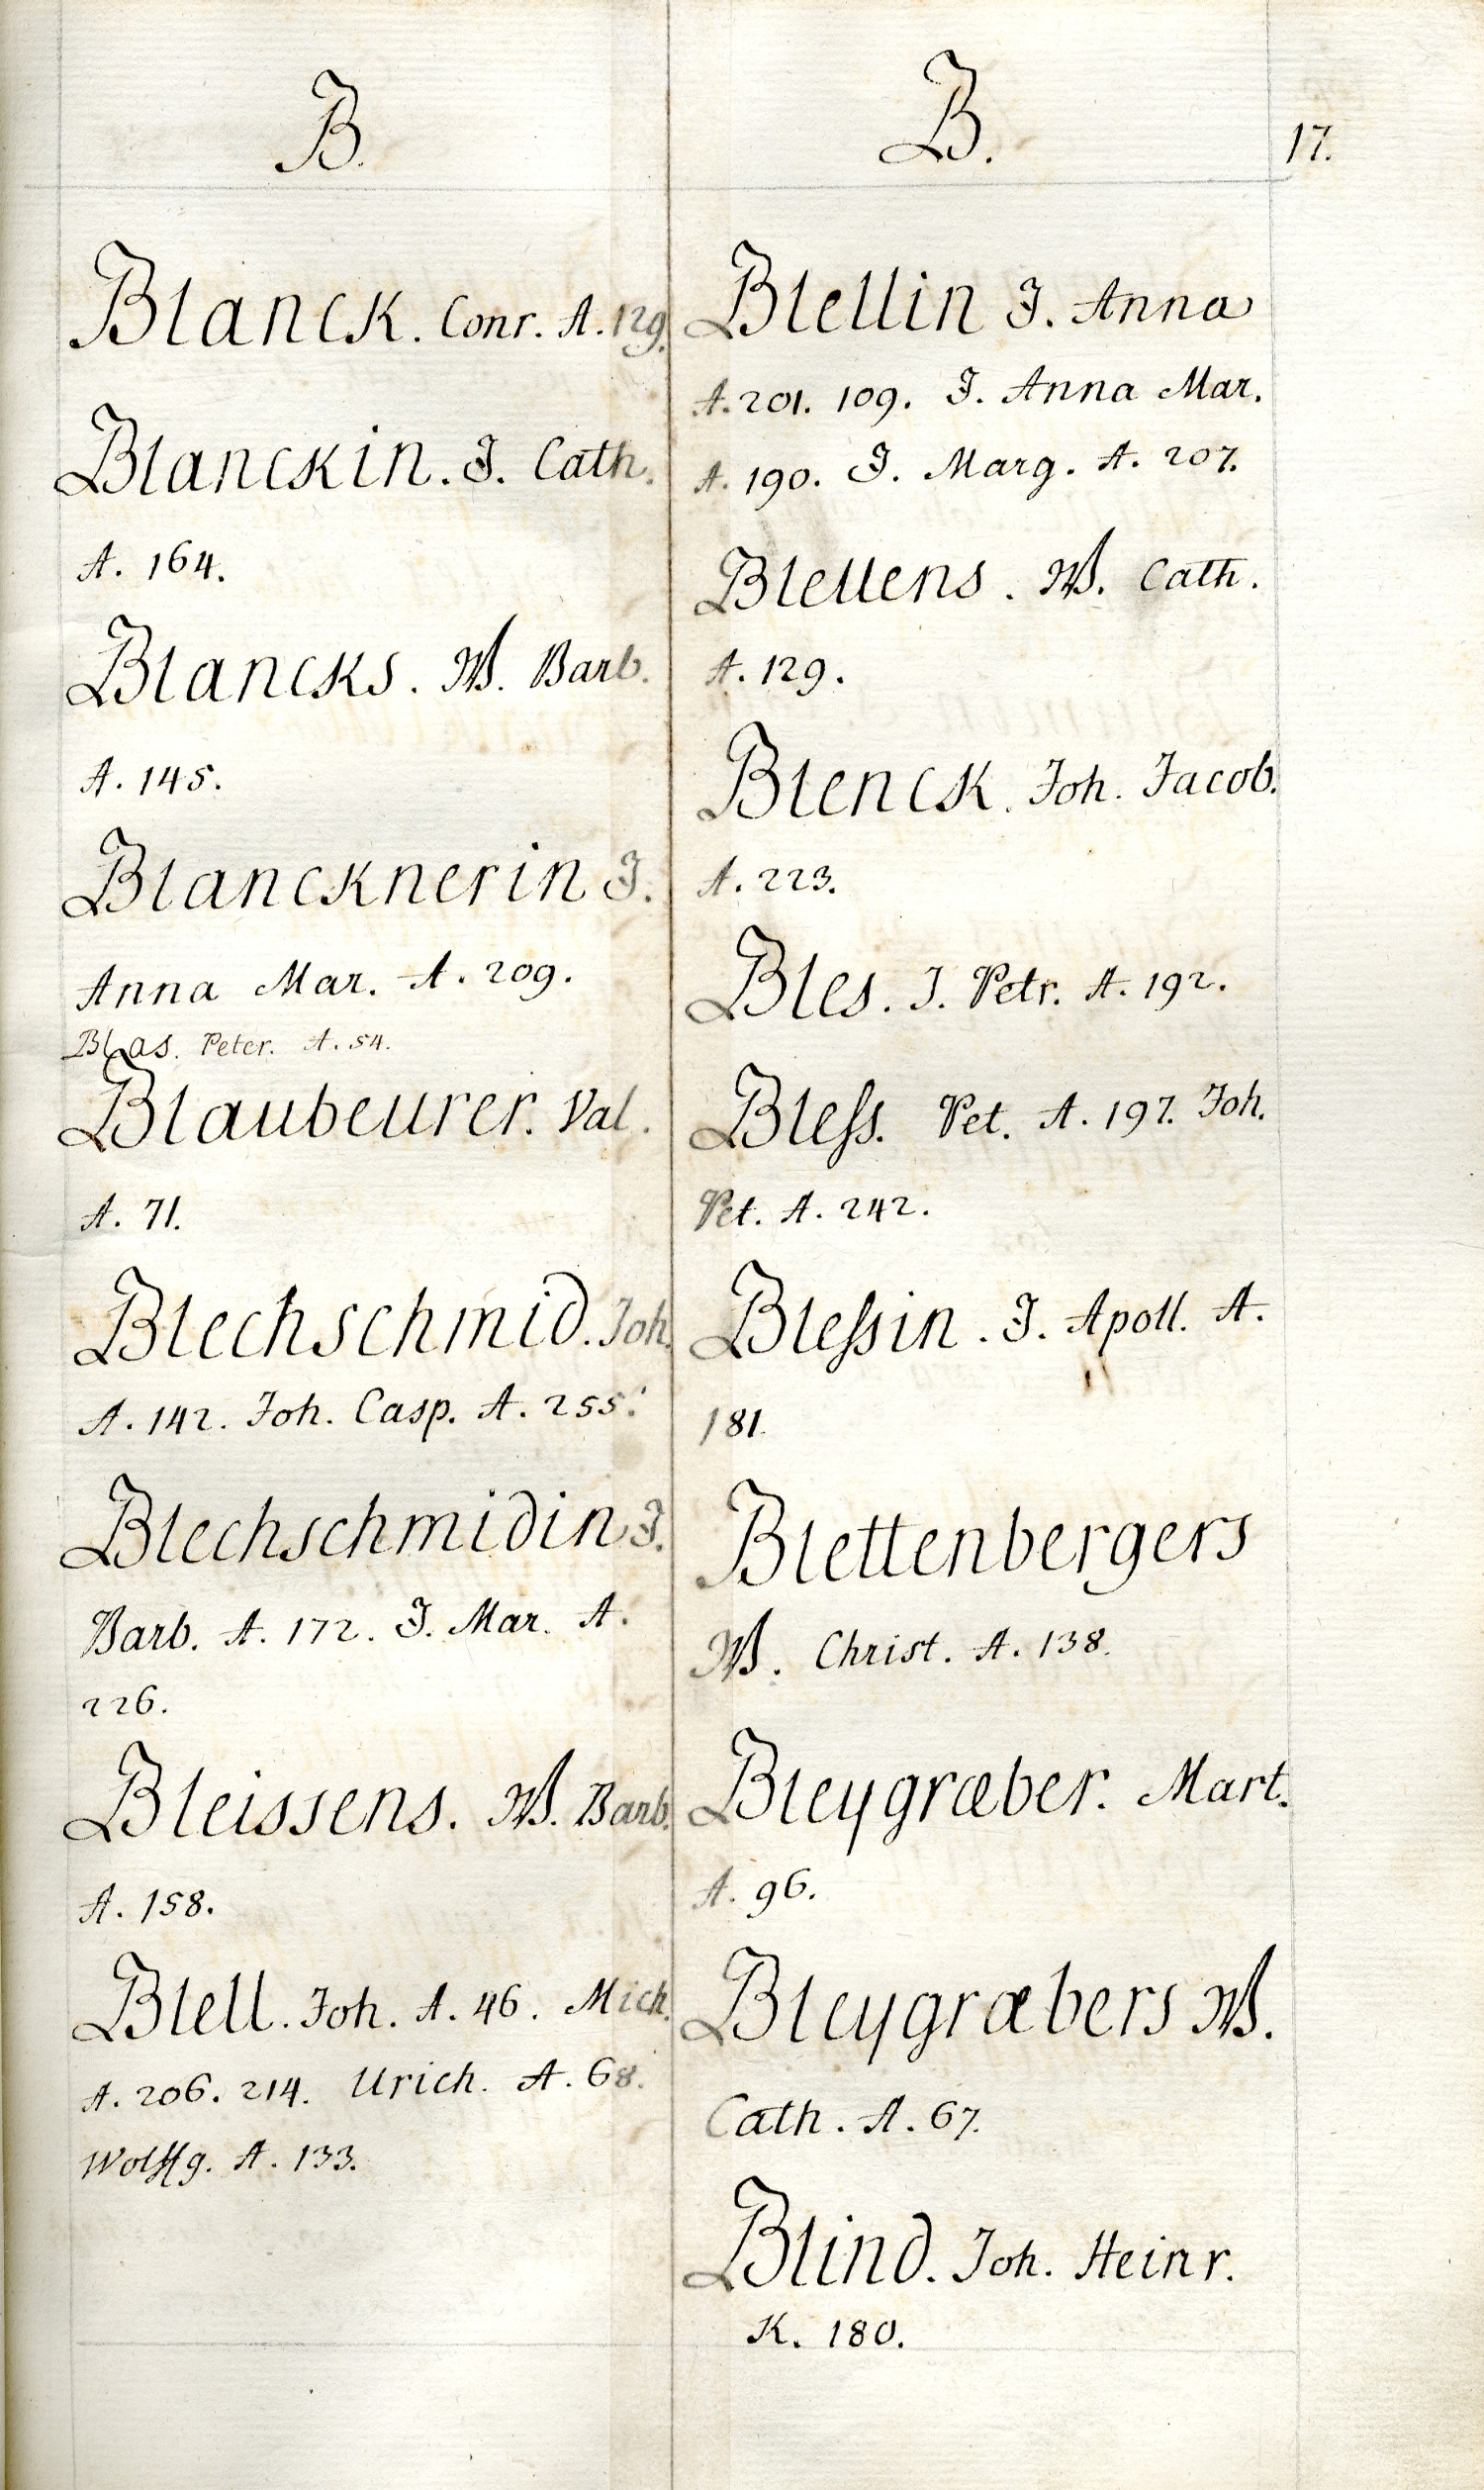 B.
Blanck. Conr. A. 129.
Blanckin. J. Cath.
A. 164.
Blancks. W. Barb.
A. 145.
Blancknerin J.
Anna Mar. A. 209.
Blas. Peter. A. 54.
Blaubeurer. Val.
A. 71.
Blechschmid. Joh.
A. 142. Joh. Casp. A. 255.
Blechschmidin J.
Barb. A. 172. J. Mar. A.
226.
Bleissens. W. Barb.
A. 158.
Blell. Joh. A. 46. Mich.
A. 206. 214. Urich. A. 68.
Wolffg. A. 133.
B.
17.
Blellin J. Anna
A. 201. 109. J. Anna Mar.
A. 190. J. Marg. A. 207.
Blellens. W. Cath.
A. 129.
Blenck. Joh. Jacob.
A. 223.
Bles. J. Petr. A. 192.
Bleſs. Pet. A. 197. Joh.
Pet. A. 242.
Bleſsin. J. Apoll. A.
181.
Blettenbergers
W. Christ. A. 138.
Bleygræber. Mart.
A. 96.
Bleygræbers W.
Cath. A. 67.
Blind. Joh. Heinr.
K. 180.